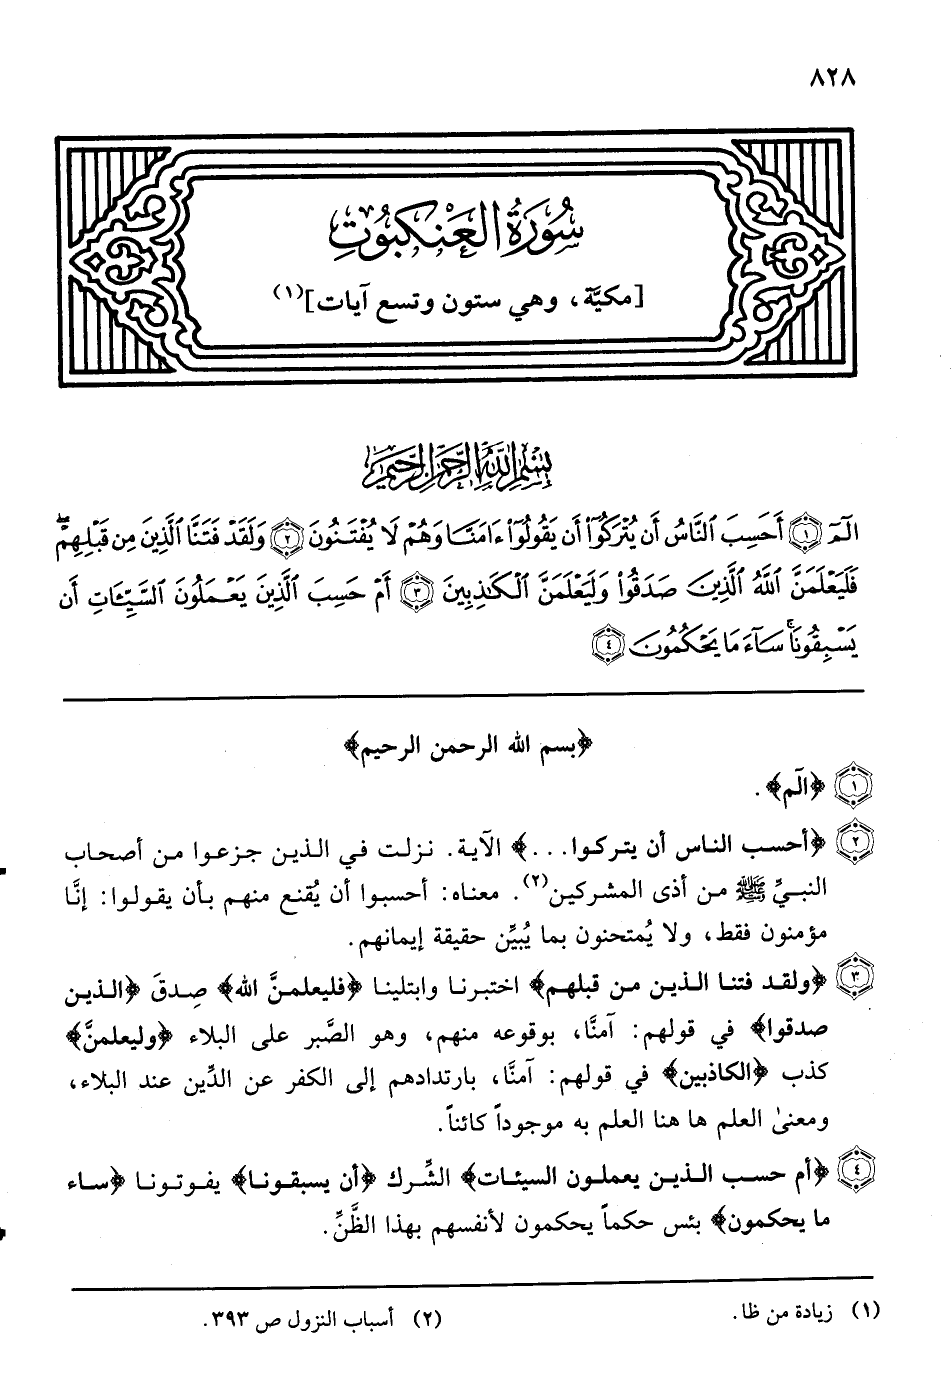 ٨٢٨
سُورَةُ العَنْكَبُوتِ
[مكيَّة، وهي ستون وتسع آيات](١)
بِسْمِ اللَّهِ الرَّحْمَنِ الرَّحِيمِ
الٓمٓ ١ أَحَسِبَ ٱلنَّاسُ أَن يُتْرَكُوٓا۟ أَن يَقُولُوٓا۟ ءَامَنَّا وَهُمْ لَا يُفْتَنُونَ ٢ وَلَقَدْ فَتَنَّا ٱلَّذِينَ مِن قَبْلِهِمْ ۖ
فَلَيَعْلَمَنَّ ٱللَّهُ ٱلَّذِينَ صَدَقُوا۟ وَلَيَعْلَمَنَّ ٱلْكَٰذِبِينَ ٣ أَمْ حَسِبَ ٱلَّذِينَ يَعْمَلُونَ ٱلسَّيِّـَٔاتِ أَن
يَسْبِقُونَا ۚ سَآءَ مَا يَحْكُمُونَ ٤
﴿بسم الله الرحمن الرحيم﴾
١ ﴿الٓم﴾.
٢ ﴿أحسب الناس أن يتركوا...﴾ الآية. نزلت في الذين جزعوا من أصحاب
النبيِّ ﷺ من أذى المشركين(٢). معناه: أحسبوا أن يُقنع منهم بأن يقولوا: إنَّا
مؤمنون فقط، ولا يُمتحنون بما يُبيِّن حقيقة إيمانهم.
٣ ﴿ولقد فتنا الذين من قبلهم﴾ اختبرنا وابتلينا ﴿فليعلمنَّ الله﴾ صِدقَ ﴿الذين
صدقوا﴾ في قولهم: آمنَّا، بوقوعه منهم، وهو الصَّبر على البلاء ﴿وليعلمنَّ﴾
كذب ﴿الكاذبين﴾ في قولهم: آمنَّا، بارتدادهم إلى الكفر عن الدِّين عند البلاء،
ومعنىٰ العلم ها هنا العلم به موجوداً كائناً.
٤ ﴿أم حسب الذين يعملون السيئات﴾ الشِّرك ﴿أن يسبقونا﴾ يفوتونا ﴿ساء
ما يحكمون﴾ بئس حكماً يحكمون لأنفسهم بهذا الظَّنِّ.
(١) زيادة من ظا.
(٢) أسباب النزول ص ٣٩٣.